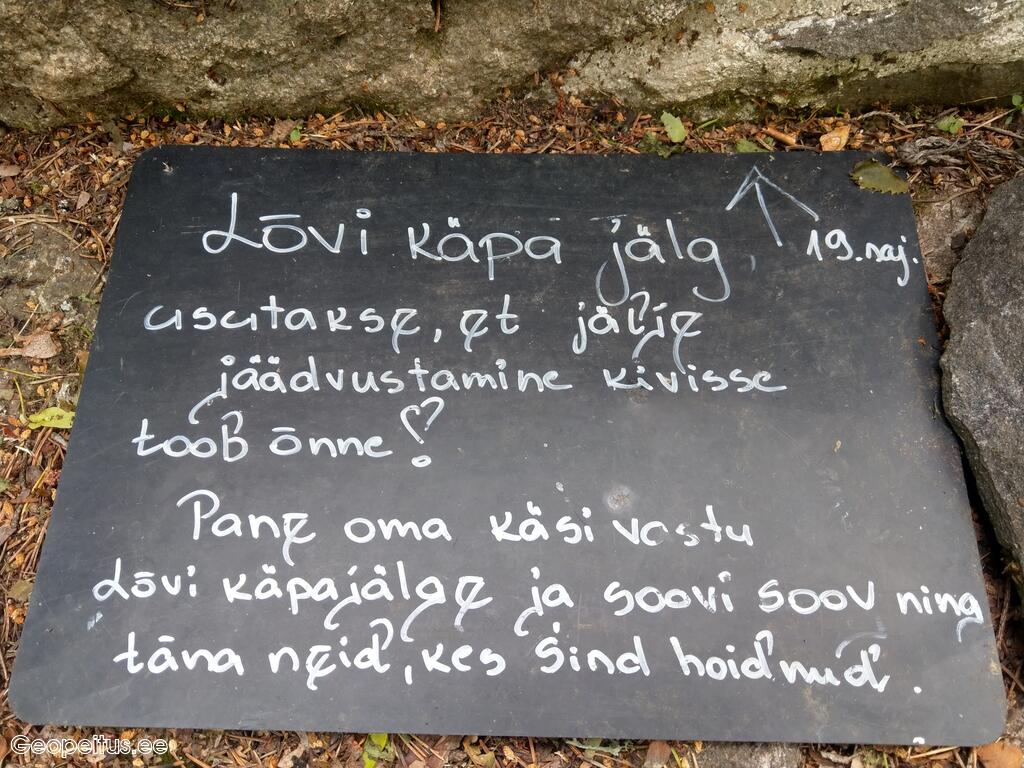 Lōvi käpa jälg, 19. saj.
usutakse, et jälje
jäädvustamine kivisse
toob õnne!
Pane oma käsi vastu
Lōvi käpajälge ja soovi soov ning
täna neid, kes Sind hoidnud.
Geopeitus.ee